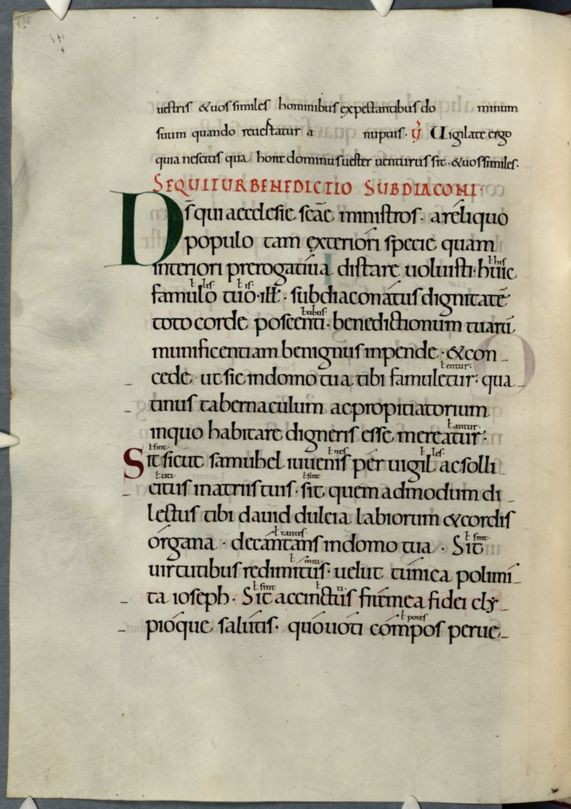 uestris & uos similes hominibus expectantibus do minum
suum quando reuertatur a nupuis · V̄ Uigilate ergo
quia nescitis qua hora dominus uester uenturus sit · & uos similes ·
SEQUITUR BENEDICTIO SUBDIACONI ·
Ds̄ qui aecclesię scāę ministros · a reliquo
populo tam exteriori specie quam
interiori prerogatiua distare uoluisti · huic ł his
famulo ł lis tuo ł is · ill̄ · subdiaconatus dignitatē
toto corde poscenti ł tibus · benedictionum tuarū
munificentiam benignus inpende · & con
cede · ut sic in domo tua tibi famuletur ł entur · qua
tinus tabernaculum ac propitiatorium
in quo habitare digneris esse mereatur ł antur ·
Sit ł sint sicut samuhel iuuenis ł nes peruigil ł les ac solli
citus ł citi in atriis tuis · sit ł sint quemadmodum di
lectus tibi dauid dulcia labiorum & cordis
organa · decantans ł tantes in domo tua · Sit ł sint
uirtutibus redimitus ł miti · uelut tunica polimi
ta ioseph · Sit ł sint accinctus ł ti frāmea fidei cly
pioque salutis · quo uoti compos ł potes perue